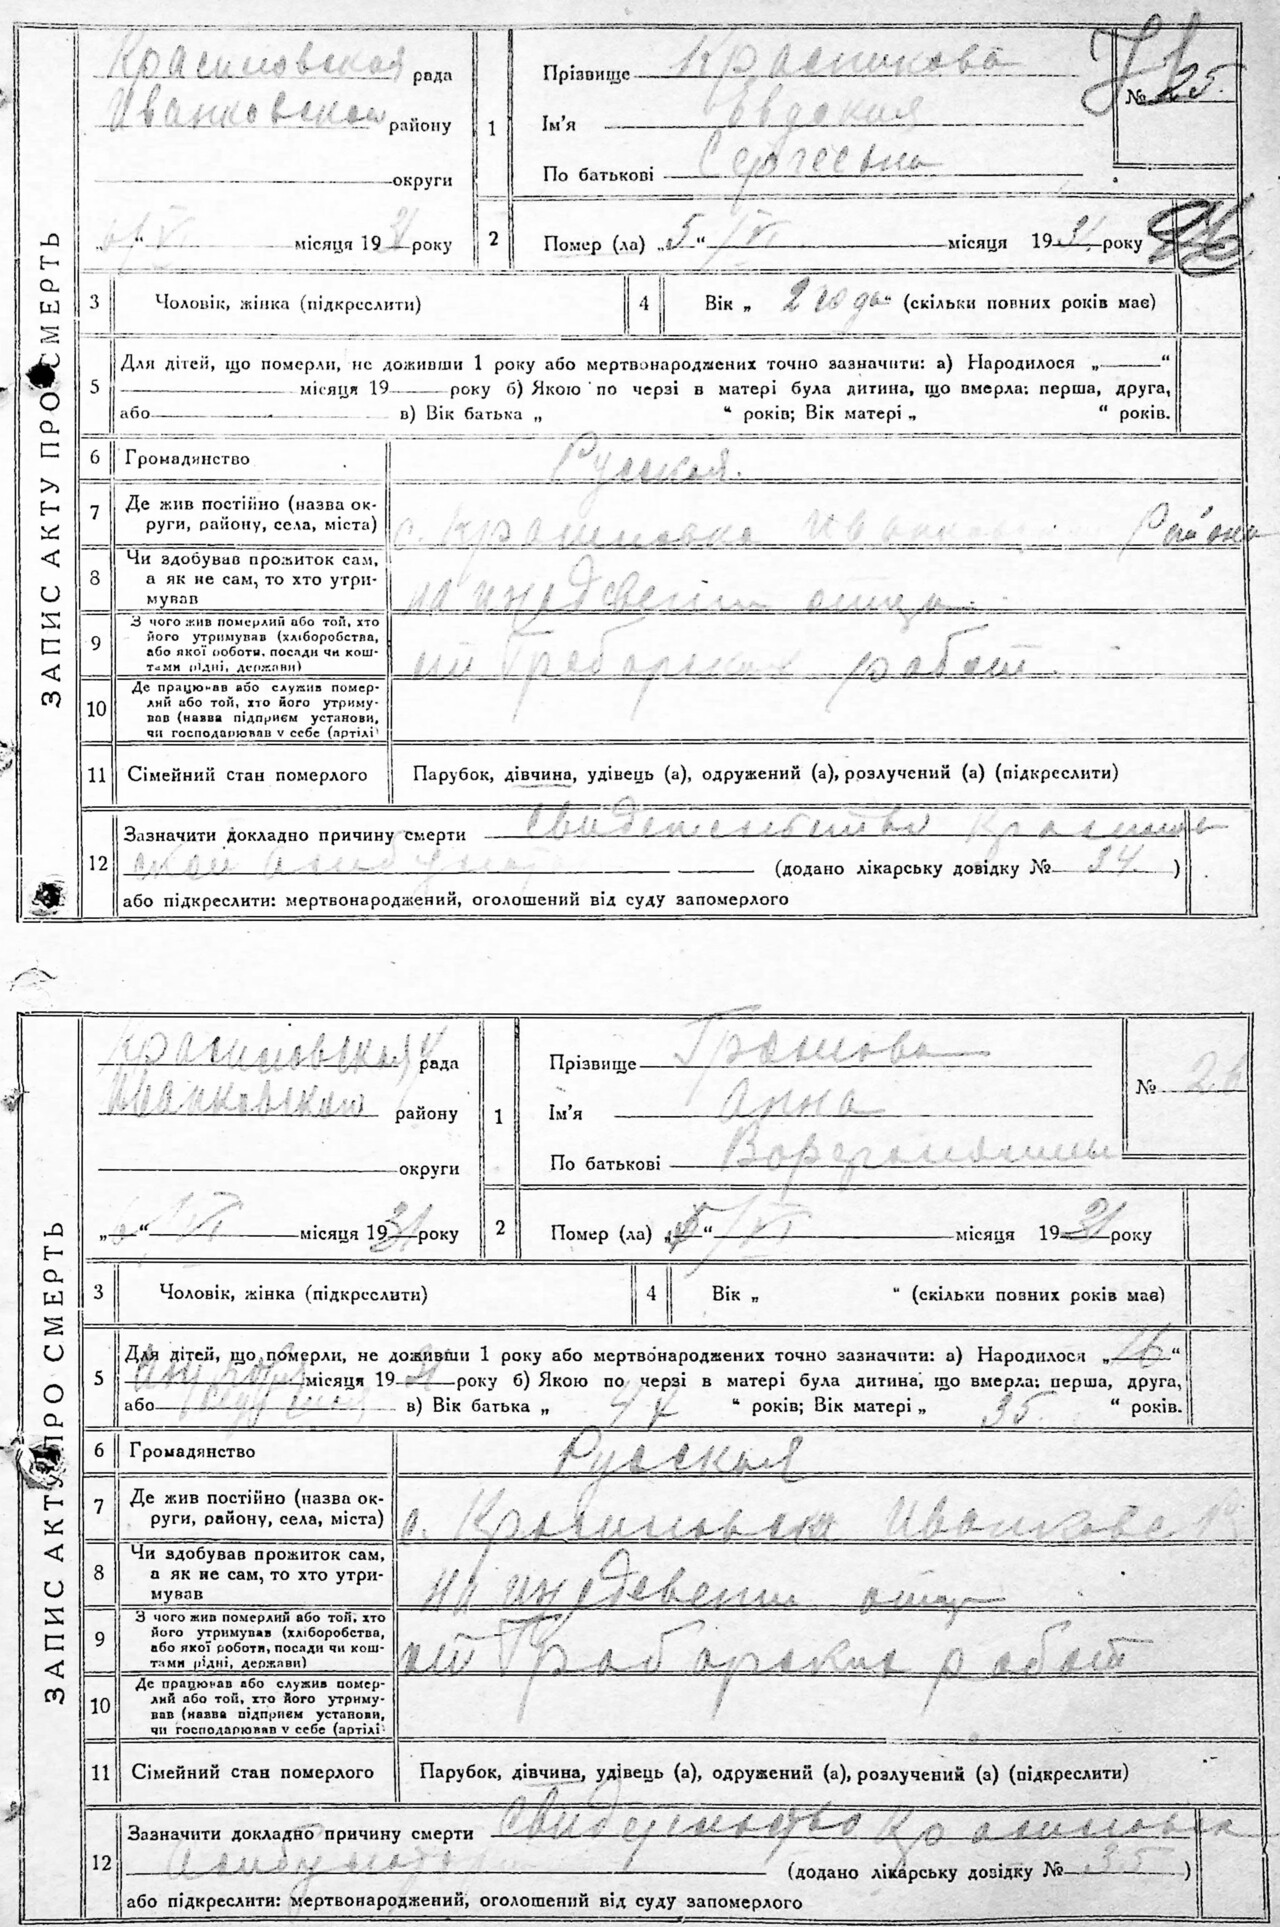 ЗАПИС АКТУ ПРО СМЕРТЬ
Красиловская рада
Иванковской району
округи
„ “ VI місяця 1931 року
1
Прізвище Красникова
Ім'я Евдокия
По батькові Сергеевна
№ 25.
2
Помер (ла) „5“ /VI місяця 1931 року
3 Чоловік, жінка (підкреслити)
4 Вік „ 2 года (скільки повних років має)
5 Для дітей, що померли, не доживши 1 року або мертвонароджених точно зазначити: а) Народилося „ “
місяця 19 року б) Якою по черзі в матері була дитина, що вмерла: перша, друга,
або в) Вік батька „ “ років; Вік матері „ “ років.
6 Громадянство Русская.
7 Де жив постійно (назва округи, району, села, міста) с. Красиловка Иванков. Района
8 Чи здобував прожиток сам, а як не сам, то хто утримував на иждвении отца
9 З чого жив померлий або той, хто його утримував (хліборобства, або якої роботи, посади чи коштами рідні, держави) от Граборских работ.
10 Де працював або служив померлий або той, хто його утримував (назва підприєм установи, чи господарював у себе (артілі)
11 Сімейний стан померлого Парубок, дівчина, удівець (а), одружений (а), розлучений (а) (підкреслити)
12 Зазначити докладно причину смерти свидетельство Красилов
ской амбулат (додано лікарську довідку № 34 )
або підкреслити: мертвонароджений, оголошений від суду запомерлого
ЗАПИС АКТУ ПРО СМЕРТЬ
Красиловская рада
Иванковской району
округи
„6“ /VI місяця 1931 року
1
Прізвище
Ім'я Анна
По батькові
№ 26
2
Помер (ла) „ “ /VI місяця 1931 року
3 Чоловік, жінка (підкреслити)
4 Вік „ “ (скільки повних років має)
5 Для дітей, що померли, не доживши 1 року або мертвонароджених точно зазначити: а) Народилося „16“
місяця 1931 року б) Якою по черзі в матері була дитина, що вмерла: перша, друга,
або в) Вік батька „ 47 “ років; Вік матері „ 35. “ років.
6 Громадянство Русская
7 Де жив постійно (назва округи, району, села, міста) с. Красиловка Иванковс
8 Чи здобував прожиток сам, а як не сам, то хто утримував на иждевении отца
9 З чого жив померлий або той, хто його утримував (хліборобства, або якої роботи, посади чи коштами рідні, держави) от Граборских работ
10 Де працював або служив померлий або той, хто його утримував (назва підприєм установи, чи господарював у себе (артілі)
11 Сімейний стан померлого Парубок, дівчина, удівець (а), одружений (а), розлучений (а) (підкреслити)
12 Зазначити докладно причину смерти Свидетельство Красиловск
Амбулатор (додано лікарську довідку № 35 )
або підкреслити: мертвонароджений, оголошений від суду запомерлого